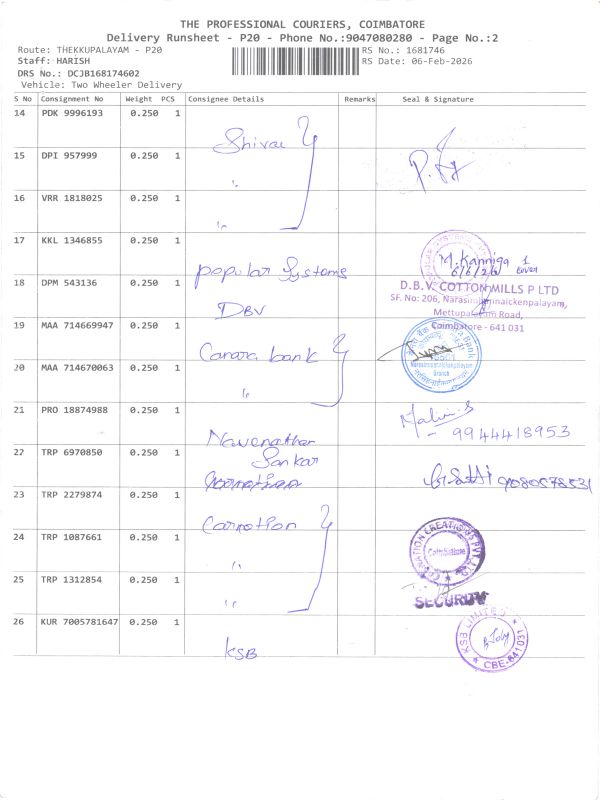 THE PROFESSIONAL COURIERS, COIMBATORE
Delivery Runsheet - P20 - Phone No.:9047080280 - Page No.:2
Route: THEKKUPALAYAM - P20
RS No.: 1681746
Staff: HARISH
RS Date: 06-Feb-2026
DRS No.: DCJB168174602
Vehicle: Two Wheeler Delivery
S No Consignment No Weight PCS Consignee Details Remarks Seal & Signature
14 PDK 9996193 0.250 1
Shivae
15 DPI 957999 0.250 1
"
16 VRR 1818025 0.250 1
"
17 KKL 1346855 0.250 1
popular Systems
M. Kanniga 1
cover
18 DPM 543136 0.250 1
DBV
D.B.V. COTTON MILLS P LTD
SF. No: 206, Narasimmanaickenpalayam,
Mettupalayam Road,
Coimbatore - 641 031
19 MAA 714669947 0.250 1
Canara bank
Narasimmanaickenpalayam
Branch
20 MAA 714670063 0.250 1
"
21 PRO 18874988 0.250 1
Navenathar
Malini.S
- 9944418953
22 TRP 6970850 0.250 1
Sankar
23 TRP 2279874 0.250 1
Carnation
24 TRP 1087661 0.250 1
"
CORONATION CREATIONS PVT LTD
Coimbatore
25 TRP 1312854 0.250 1
"
SECURITY
26 KUR 7005781647 0.250 1
KSB
KSB LIMITED
CBE-641031